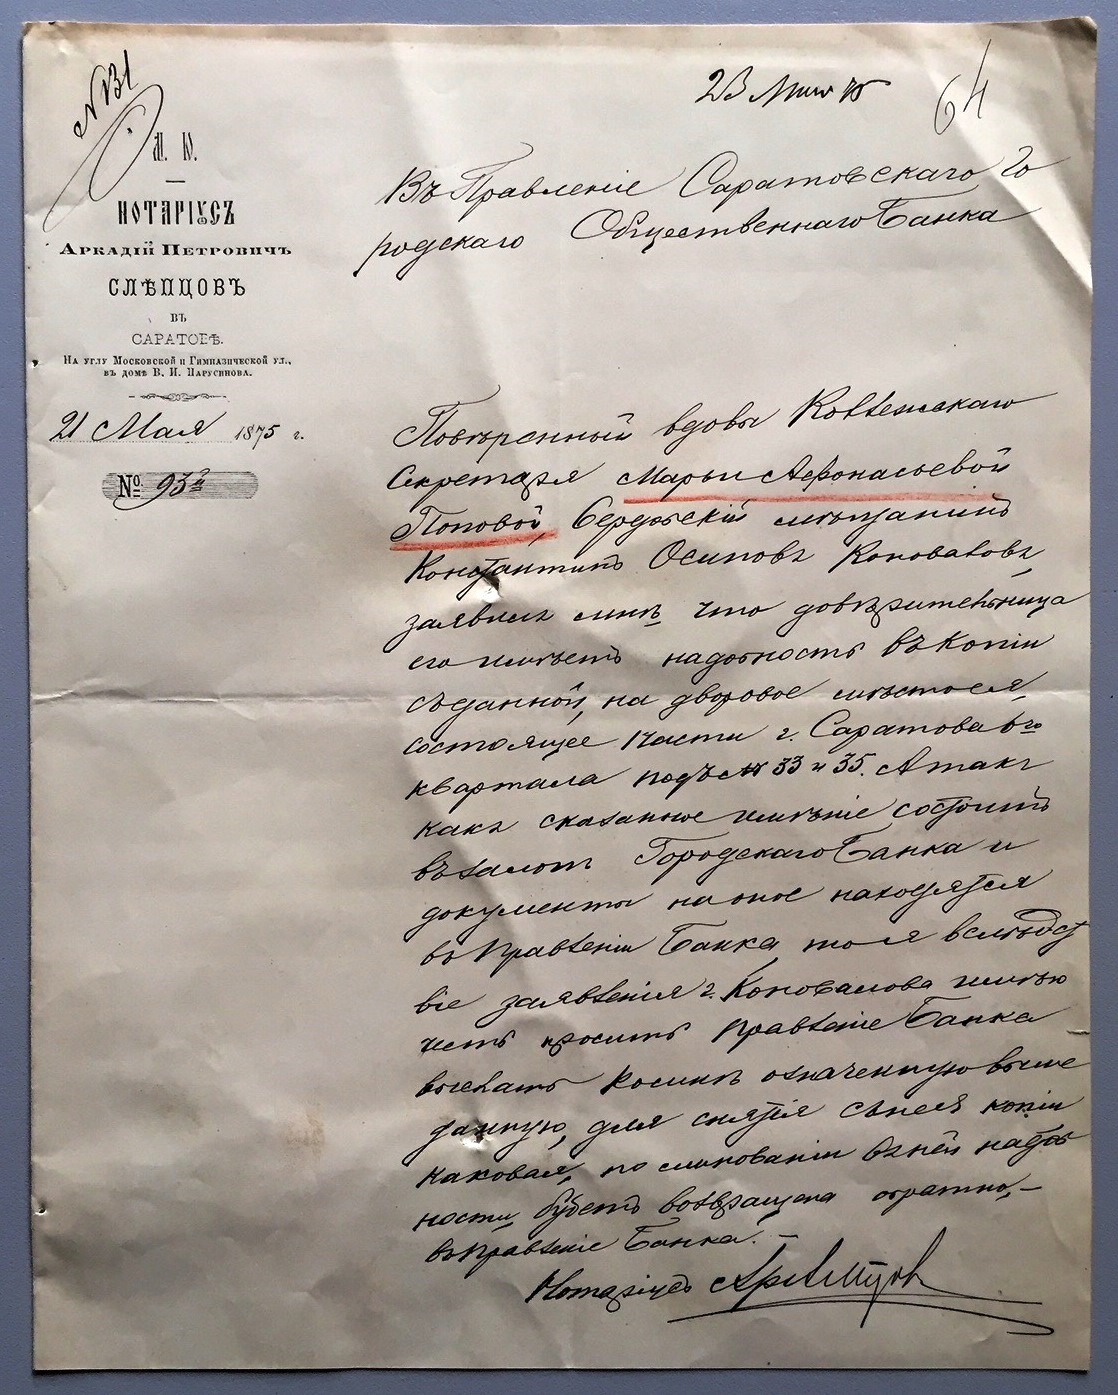 № 131
23 Мая 75
64
М. Ю.
НОТАРІУСЪ
АРКАДІЙ ПЕТРОВИЧЪ
СЛѢПЦОВЪ
ВЪ
САРАТОВѢ.
НА УГЛУ МОСКОВСКОЙ И ГИМНАЗИЧЕСКОЙ УЛ.,
ВЪ ДОМѢ В. И. ПАРУСИНОВА.
21 Мая 1875 г.
№
Въ Правленіе Саратовскаго Го
родскаго Общественнаго Банка
Повѣренный вдовы Коллежскаго
Секретаря Марьи Афонасьевой
Поповой, Сердобскій мѣщанинъ
Константинъ Осиповъ Коноваловъ,
заявилъ мнѣ, что довѣрительница
его имѣетъ надобность въ копіи
съ данной, на дворовое мѣсто ея,
состоящее части г. Саратова 6го
квартала подъ № 33 и 35. А такъ
какъ сказанное имѣніе состоитъ
въ залогѣ Городскаго Банка и
документы на оное находятся
въ Правленіи Банка, то я вслѣдст
віе заявленія г. Коновалова имѣю
честь просить Правленіе Банка
выслать ко мнѣ означенную выше
данную, для снятія съ нея копіи
каковая, по минованіи въ ней надоб
ности, будетъ возвращена обратно,—
въ Правленіе Банка. —
Нотаріусъ Ар. Слѣпцовъ